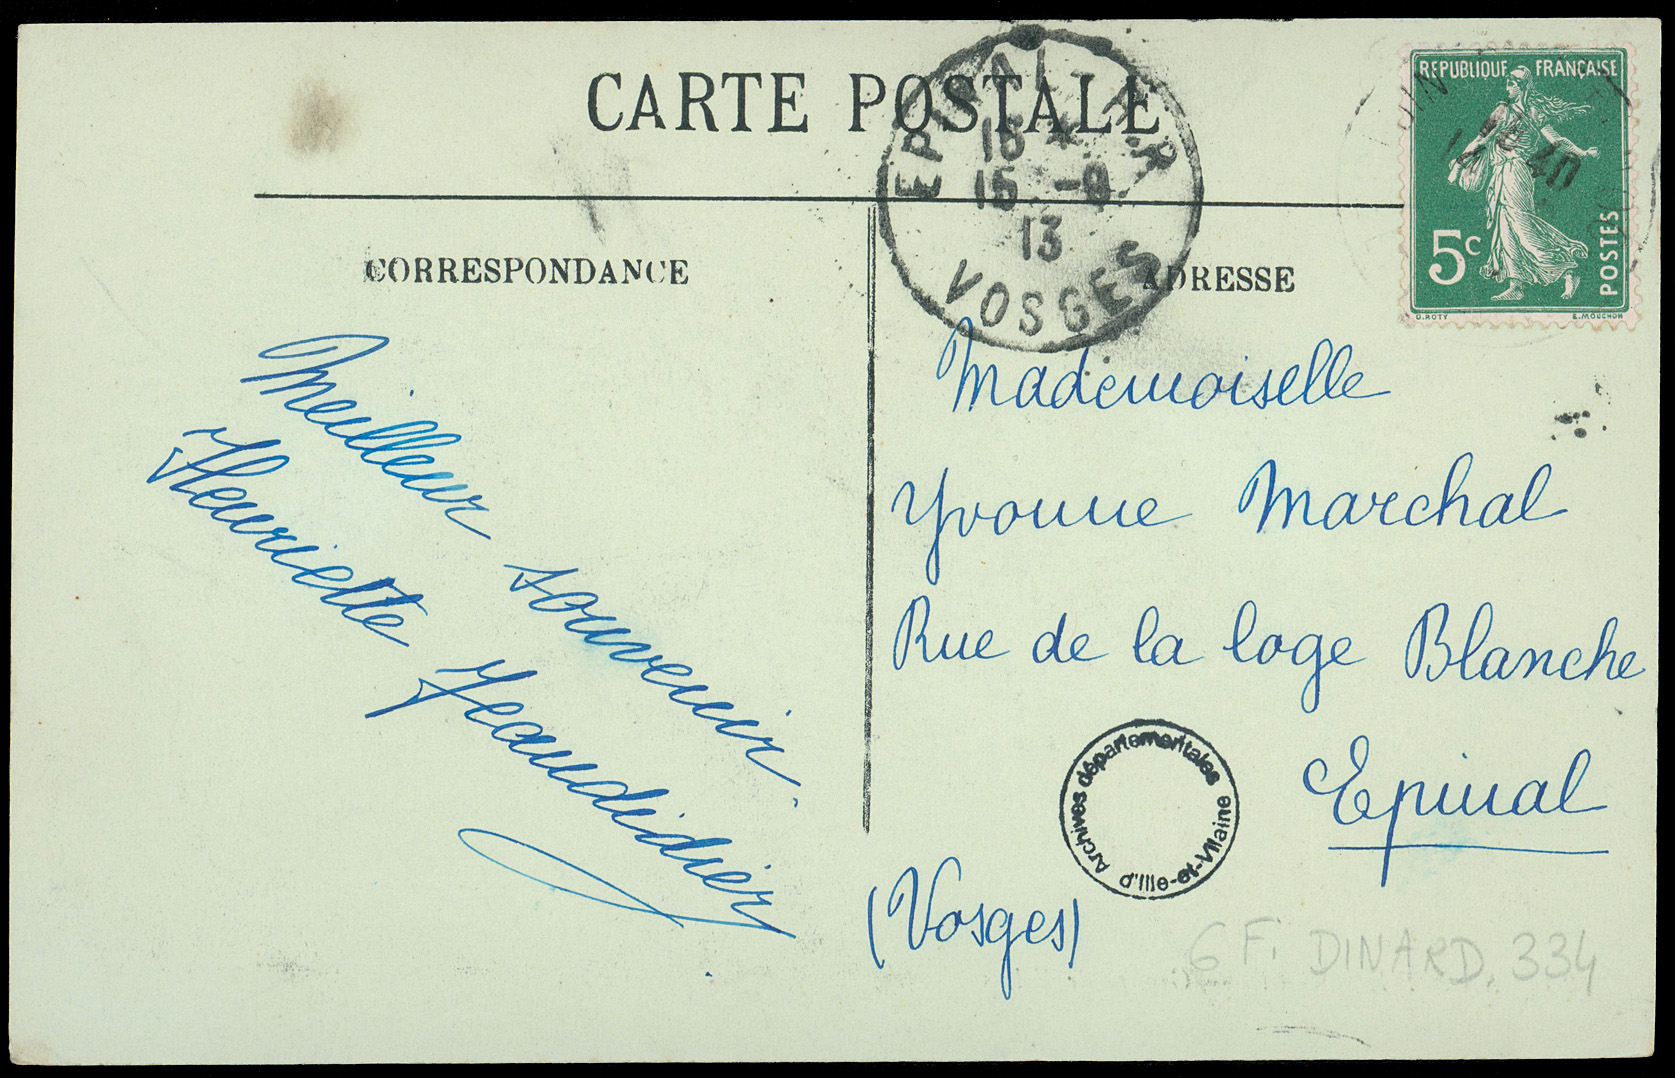 CARTE POSTALE
EPINAL GAR
15 *
15 -9
13
VOSGES
REPUBLIQUE FRANÇAISE
40
5c
POSTES
O.ROTY E.MOUCHON
CORRESPONDANCE
ADRESSE
Meilleur souvenir.
Henriette Jeandidier
Mademoiselle
Yvonne Marchal
Rue de la loge Blanche
Epinal
(Vosges)
Archives départementales
d'Ille-et-Vilaine
6 Fi DINARD. 334